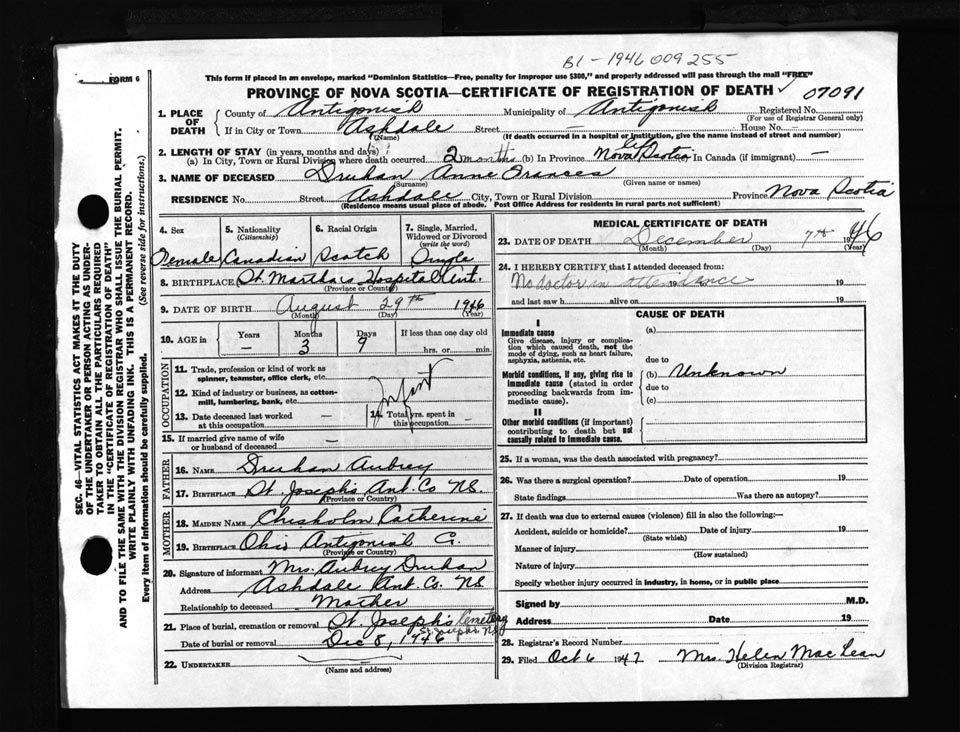 B1-1946 009 255
FORM 6
This form if placed in an envelope, marked "Dominion Statistics—Free, penalty for improper use $300," and properly addressed will pass through the mail "FREE"
PROVINCE OF NOVA SCOTIA—CERTIFICATE OF REGISTRATION OF DEATH 07091
1. PLACE OF DEATH County of Antigonish Municipality of Antigonish Registered No.
(For use of Registrar General only)
If in City or Town Ashdale Street House No.
(Name) (If death occurred in a hospital or institution, give the name instead of street and number)
2. LENGTH OF STAY (in years, months and days) life
(a) In City, Town or Rural Division where death occurred 2 months (b) In Province Nova Scotia In Canada (if immigrant) —
3. NAME OF DECEASED Druhan Anne Frances
(Surname) (Given name or names)
RESIDENCE No. Street Ashdale City, Town or Rural Division Province Nova Scotia
(Residence means usual place of abode. Post Office Address for residents in rural parts not sufficient)
4. Sex 5. Nationality (Citizenship) 6. Racial Origin 7. Single, Married, Widowed or Divorced (write the word)
Female Canadian Scotch Single
8. BIRTHPLACE St. Martha's Hospital Ant.
(Province or Country)
9. DATE OF BIRTH August 29th 1946
(Month) (Day) (Year)
10. AGE in Years Months Days If less than one day old
— 3 9 hrs. or min.
OCCUPATION
11. Trade, profession or kind of work as spinner, teamster, office clerk, etc.
Infant
12. Kind of industry or business, as cotton-mill, lumbering, bank, etc.
13. Date deceased last worked at this occupation — 14. Total yrs. spent in this occupation —
15. If married give name of wife or husband of deceased —
FATHER
16. NAME Druhan Aubrey
17. BIRTHPLACE St. Josephs Ant. Co NS.
(Province or Country)
MOTHER
18. MAIDEN NAME Chisholm Catherine
19. BIRTHPLACE Ohio Antigonish G.
(Province or Country)
20. Signature of informant Mrs. Aubrey Druhan
Address Ashdale Ant. Co. NS.
Relationship to deceased Mother
21. Place of burial, cremation or removal St. Joseph's Cemetery
St. Josephs NS
Date of burial or removal Dec 8, 1946
22. UNDERTAKER
(Name and address)
MEDICAL CERTIFICATE OF DEATH
23. DATE OF DEATH December 7th 1946
(Month) (Day) (Year)
24. I HEREBY CERTIFY that I attended deceased from:
No doctor in attendance 19 to 19
and last saw h alive on 19
CAUSE OF DEATH
I
Immediate cause (a)
Give disease, injury or complication which caused death, not the mode of dying, such as heart failure, asphyxia, asthenia, etc.
due to
Morbid conditions, if any, giving rise to immediate cause (stated in order proceeding backwards from immediate cause).
(b) Unknown
due to
(c)
II
Other morbid conditions (if important) contributing to death but not causally related to immediate cause.
25. If a woman, was the death associated with pregnancy?
26. Was there a surgical operation? Date of operation 19
State findings Was there an autopsy?
27. If death was due to external causes (violence) fill in also the following:—
Accident, suicide or homicide? Date of injury 19
(State which)
Manner of injury
(How sustained)
Nature of injury
Specify whether injury occurred in industry, in home, or in public place
Signed by M.D.
Address Date 19
28. Registrar's Record Number
29. Filed Oct 6 1947 Mrs. Helen MacLean
(Division Registrar)
SEC. 46—VITAL STATISTICS ACT MAKES IT THE DUTY
OF THE UNDERTAKER OR PERSON ACTING AS UNDER-
TAKER TO OBTAIN ALL THE PARTICULARS REQUIRED
IN THE "CERTIFICATE OF REGISTRATION OF DEATH"
AND TO FILE THE SAME WITH THE DIVISION REGISTRAR WHO SHALL ISSUE THE BURIAL PERMIT.
WRITE PLAINLY WITH UNFADING INK. THIS IS A PERMANENT RECORD.
Every item of information should be carefully supplied. (See reverse side for instructions.)